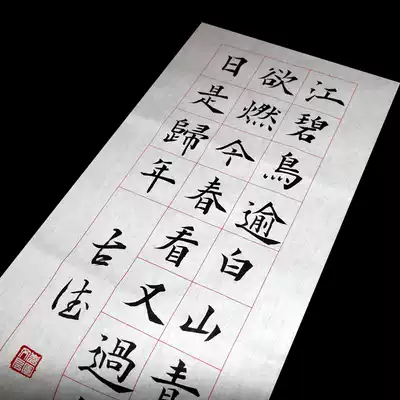 江碧鳥逾白山青
欲燃今春看又過
日是歸年